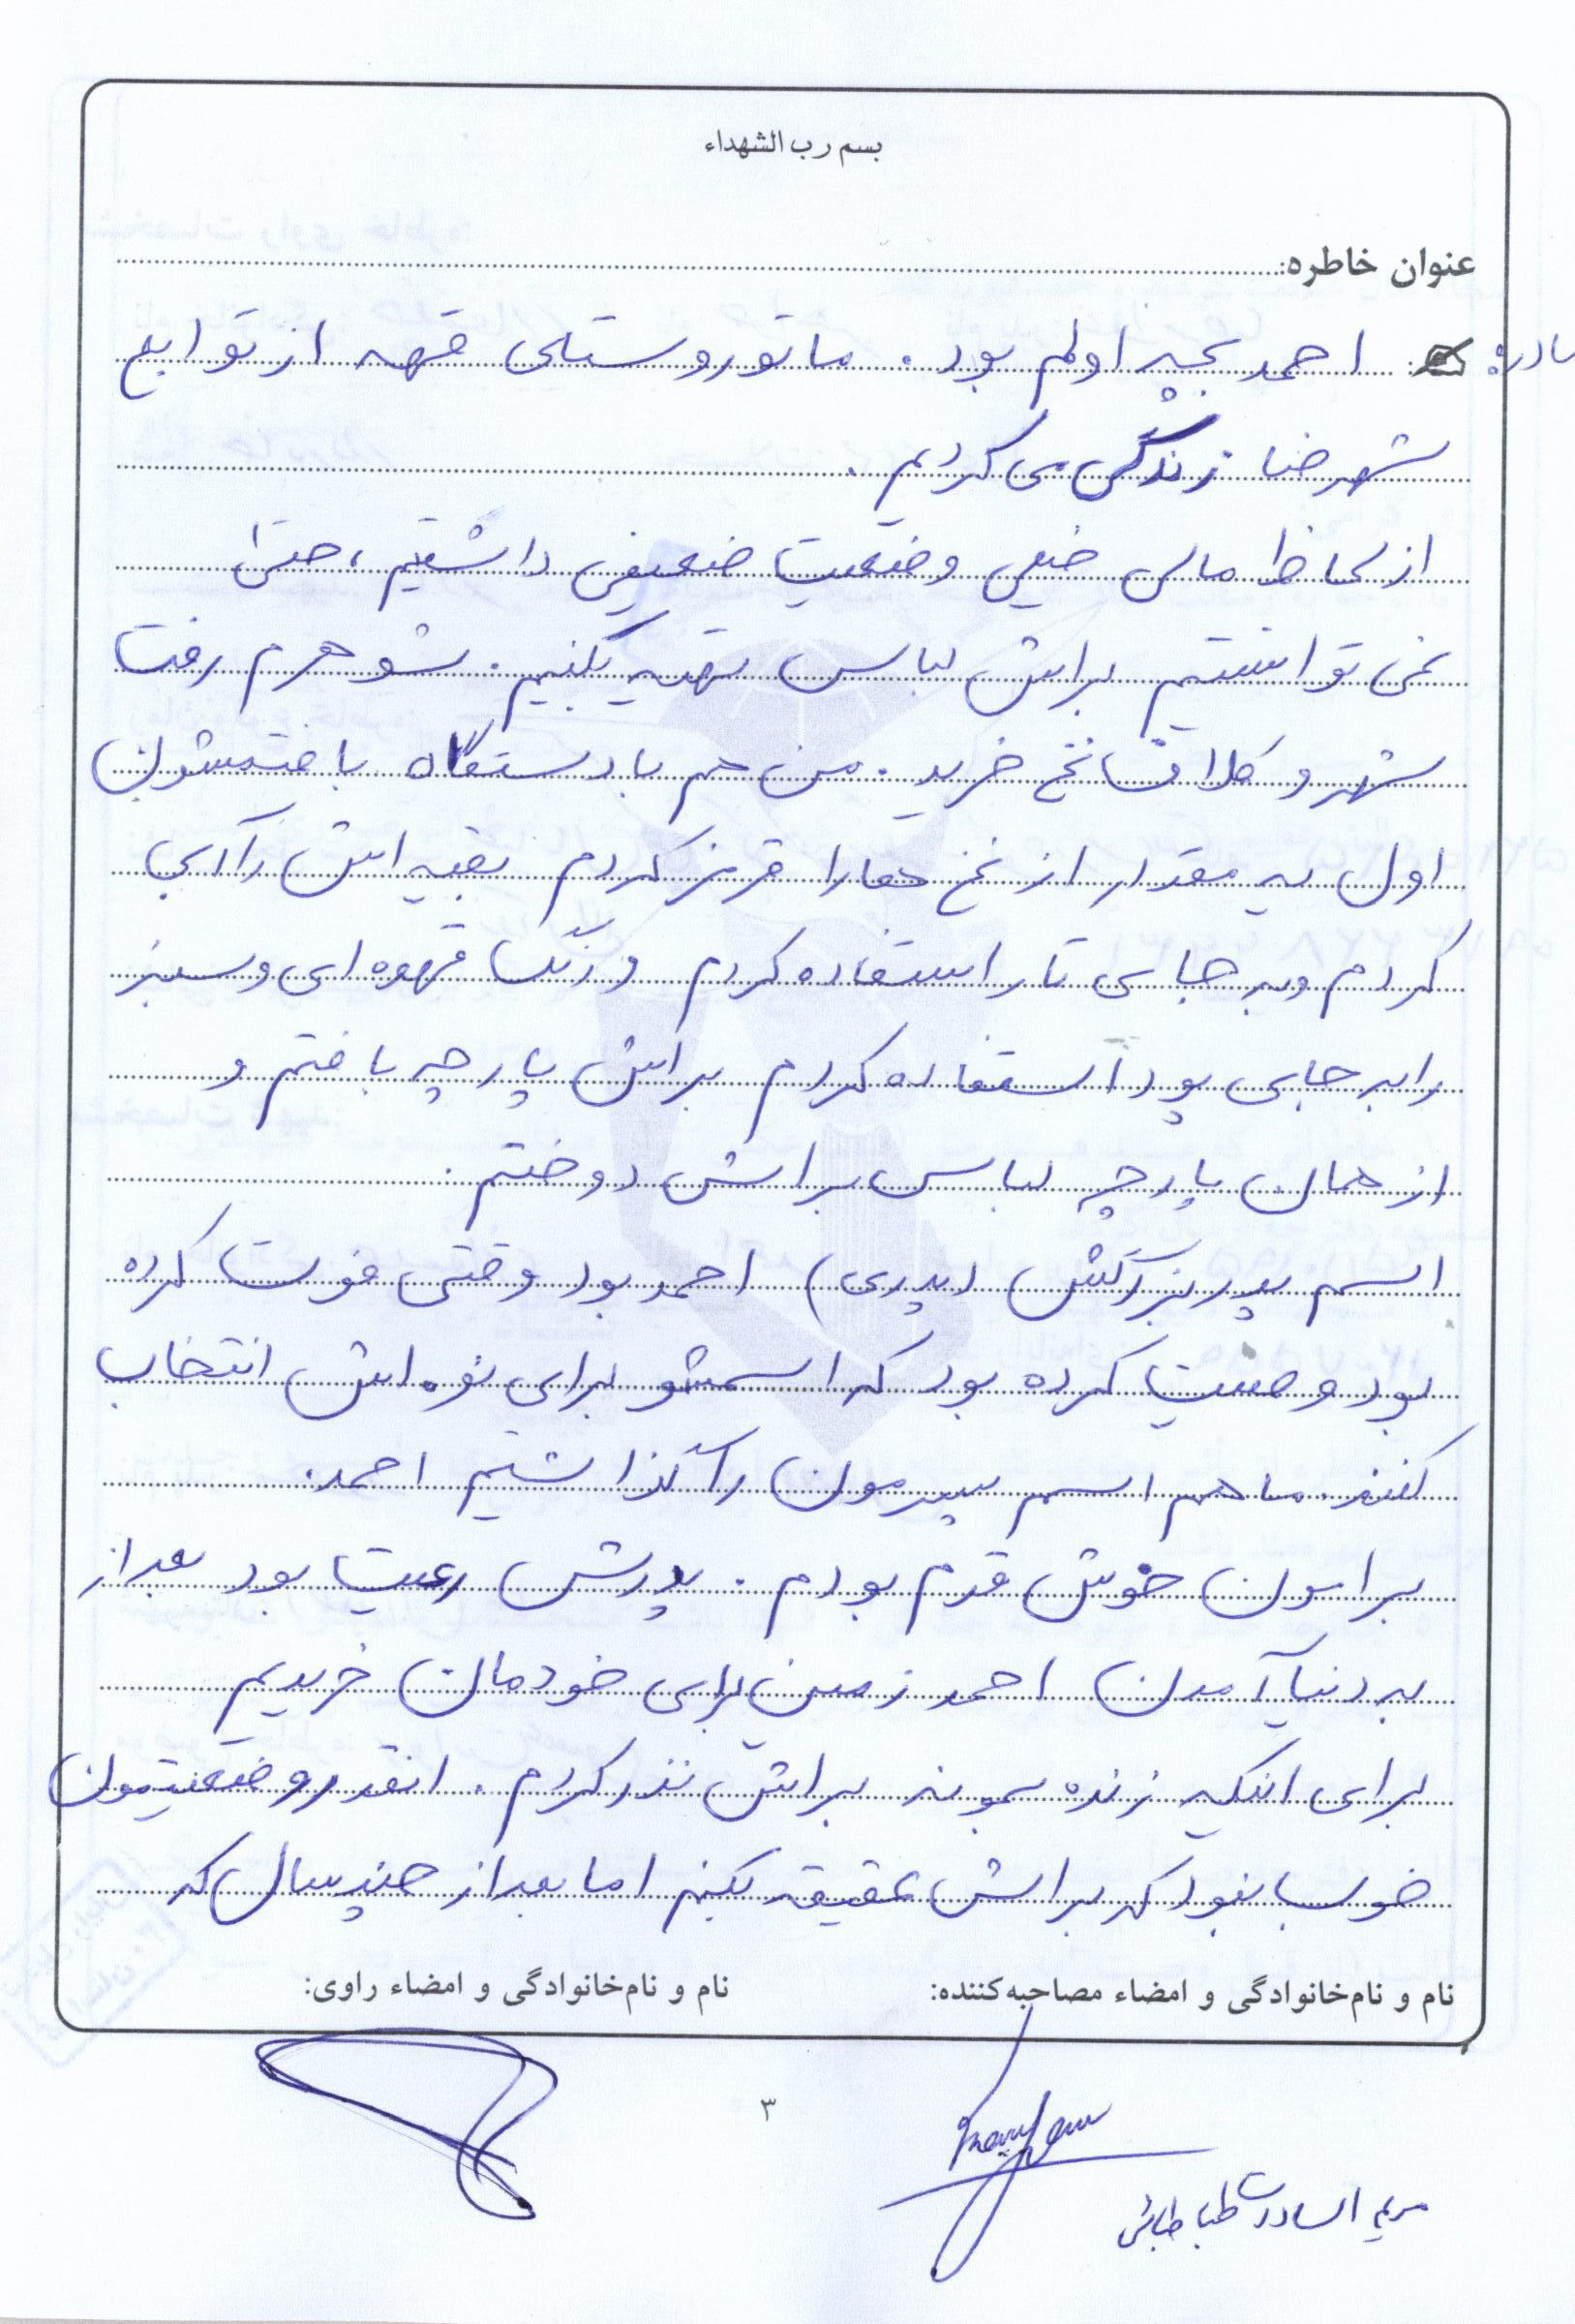 بسم رب الشهداء
عنوان خاطره:
مادر: احمد بچه اولم بود. ما تو روستای قهه از توابع
شهرضا زندگی می کردیم.
از لحاظ مالی خیلی وضعیت ضعیفی داشتیم، حتی
نمی توانستیم براش لباس تهیه بکنیم. شوهرم رفت
شهر و کلاف نخ خرید. من هم با دستگاه بافتمشون
اول یه مقدار از نخ ها را قرمز کردم بقیه اش را آبی
کردم و به جای تار استفاده کردم و رنگ قهوه ای و سبز
را به جای پود استفاده کردم براش پارچه بافتم و
از همان پارچه لباس براش دوختم.
اسم پدربزرگش (پدری) احمد بود وقتی فوت کرده
بود وصیت کرده بود که اسمشو برای نوه اش انتخاب
کنند. ما هم اسم پسرمون را گذاشتیم احمد.
برامون خوش قدم بودم. پدرش رعیت بود بعد از
به دنیا آمدن احمد زمین برای خودمان خریدیم
برای اینکه زنده بمونه براش نذر کردم. انقدر وضعیتمون
خوب نبود که براش عقیقه بکنم اما بعد از چند سال که
نام و نام‌خانوادگی و امضاء مصاحبه‌کننده:
نام و نام‌خانوادگی و امضاء راوی:
۳
Maryam
مریم السادات طباطبائی